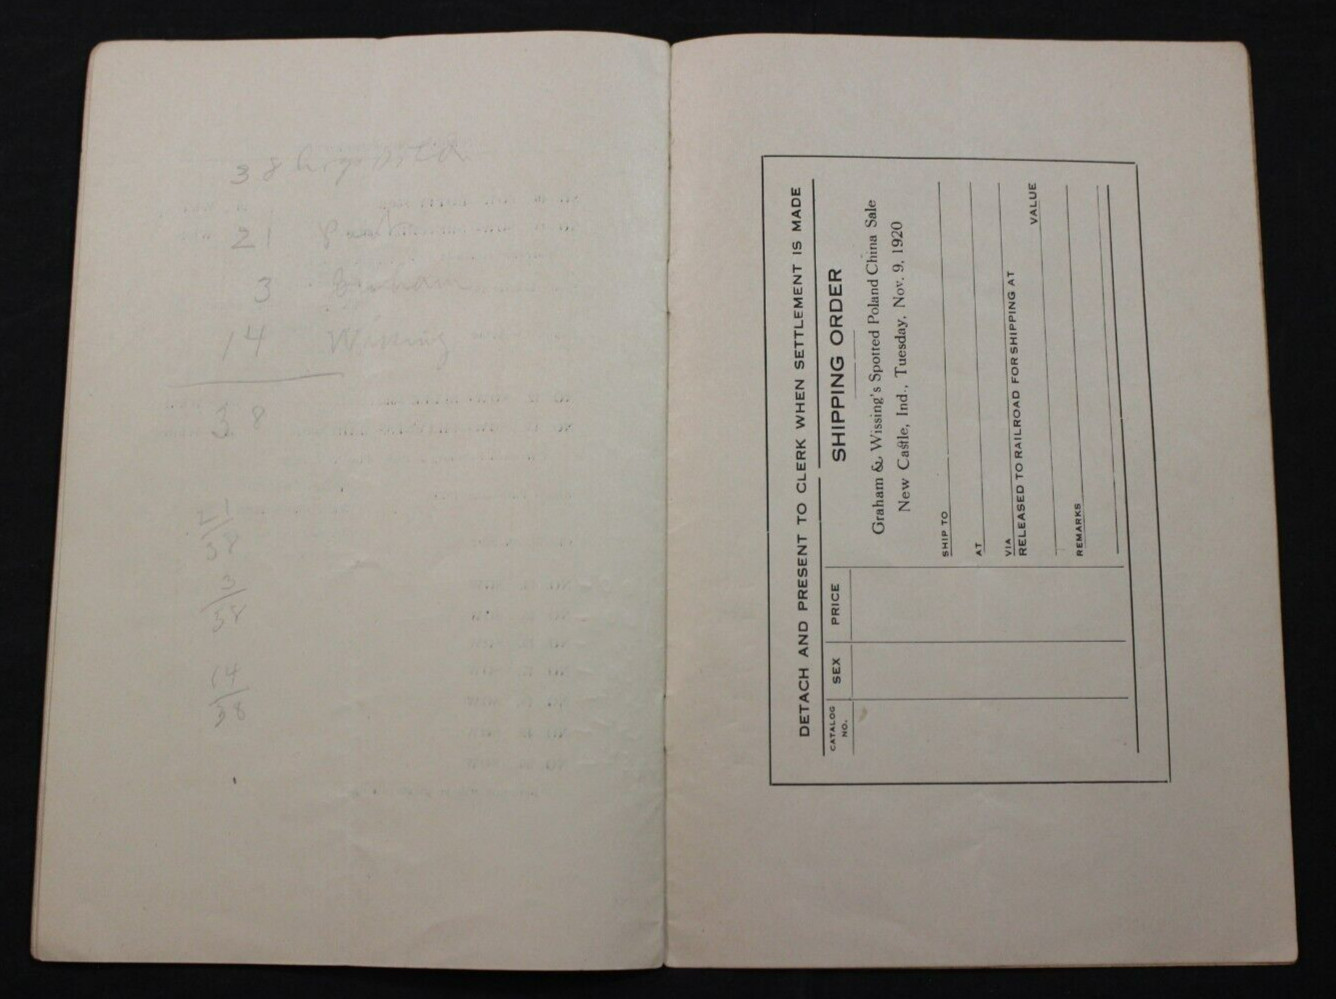 38
21
3 Graham
14 Wissing
38
21
38
3
38
14
38
DETACH AND PRESENT TO CLERK WHEN SETTLEMENT IS MADE
SHIPPING ORDER
Graham & Wissing's Spotted Poland China Sale
New Castle, Ind., Tuesday, Nov. 9, 1920
SHIP TO
AT
VIA
RELEASED TO RAILROAD FOR SHIPPING AT
VALUE
REMARKS
CATALOG NO.
SEX
PRICE